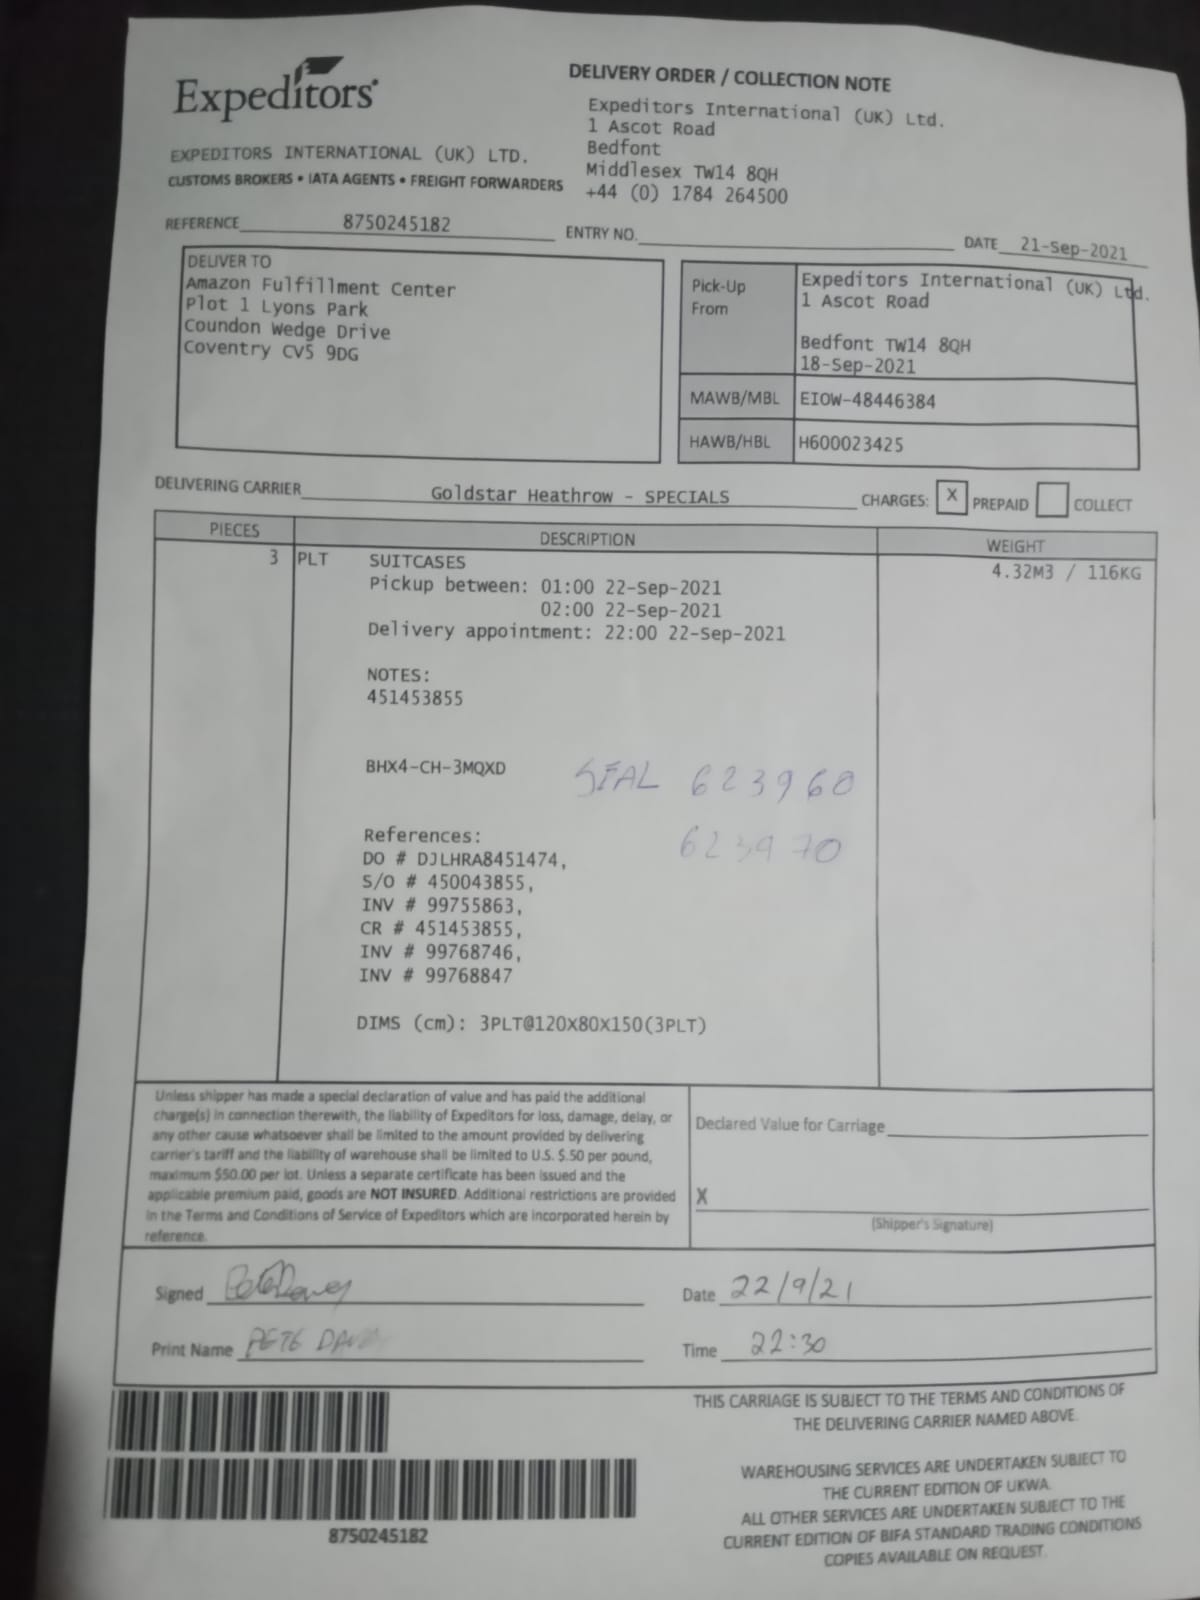 Expeditors
DELIVERY ORDER / COLLECTION NOTE
Expeditors International (UK) Ltd.
1 Ascot Road
Bedfont
Middlesex TW14 8QH
+44 (0) 1784 264500
EXPEDITORS INTERNATIONAL (UK) LTD.
CUSTOMS BROKERS • IATA AGENTS • FREIGHT FORWARDERS
REFERENCE 8750245182 ENTRY NO. DATE 21-Sep-2021
DELIVER TO
Amazon Fulfillment Center
Plot 1 Lyons Park
Coundon Wedge Drive
Coventry CV5 9DG
Pick-Up From
Expeditors International (UK) Ltd.
1 Ascot Road
Bedfont TW14 8QH
18-Sep-2021
MAWB/MBL EIOW-48446384
HAWB/HBL H600023425
DELIVERING CARRIER Goldstar Heathrow - SPECIALS CHARGES: X PREPAID COLLECT
PIECES DESCRIPTION WEIGHT
3 PLT SUITCASES 4.32M3 / 116KG
Pickup between: 01:00 22-Sep-2021
02:00 22-Sep-2021
Delivery appointment: 22:00 22-Sep-2021
NOTES:
451453855
BHX4-CH-3MQXD
SEAL 623960
623970
References:
DO # DJLHRA8451474,
S/O # 450043855,
INV # 99755863,
CR # 451453855,
INV # 99768746,
INV # 99768847
DIMS (cm): 3PLT@120X80X150(3PLT)
Unless shipper has made a special declaration of value and has paid the additional
charge(s) in connection therewith, the liability of Expeditors for loss, damage, delay, or
any other cause whatsoever shall be limited to the amount provided by delivering
carrier's tariff and the liability of warehouse shall be limited to U.S. $.50 per pound,
maximum $50.00 per lot. Unless a separate certificate has been issued and the
applicable premium paid, goods are NOT INSURED. Additional restrictions are provided
in the Terms and Conditions of Service of Expeditors which are incorporated herein by
reference.
Declared Value for Carriage
X
(Shipper's Signature)
Signed
Date 22/9/21
Print Name PETE
Time 22:30
8750245182
THIS CARRIAGE IS SUBJECT TO THE TERMS AND CONDITIONS OF
THE DELIVERING CARRIER NAMED ABOVE.
WAREHOUSING SERVICES ARE UNDERTAKEN SUBJECT TO
THE CURRENT EDITION OF UKWA.
ALL OTHER SERVICES ARE UNDERTAKEN SUBJECT TO THE
CURRENT EDITION OF BIFA STANDARD TRADING CONDITIONS
COPIES AVAILABLE ON REQUEST.